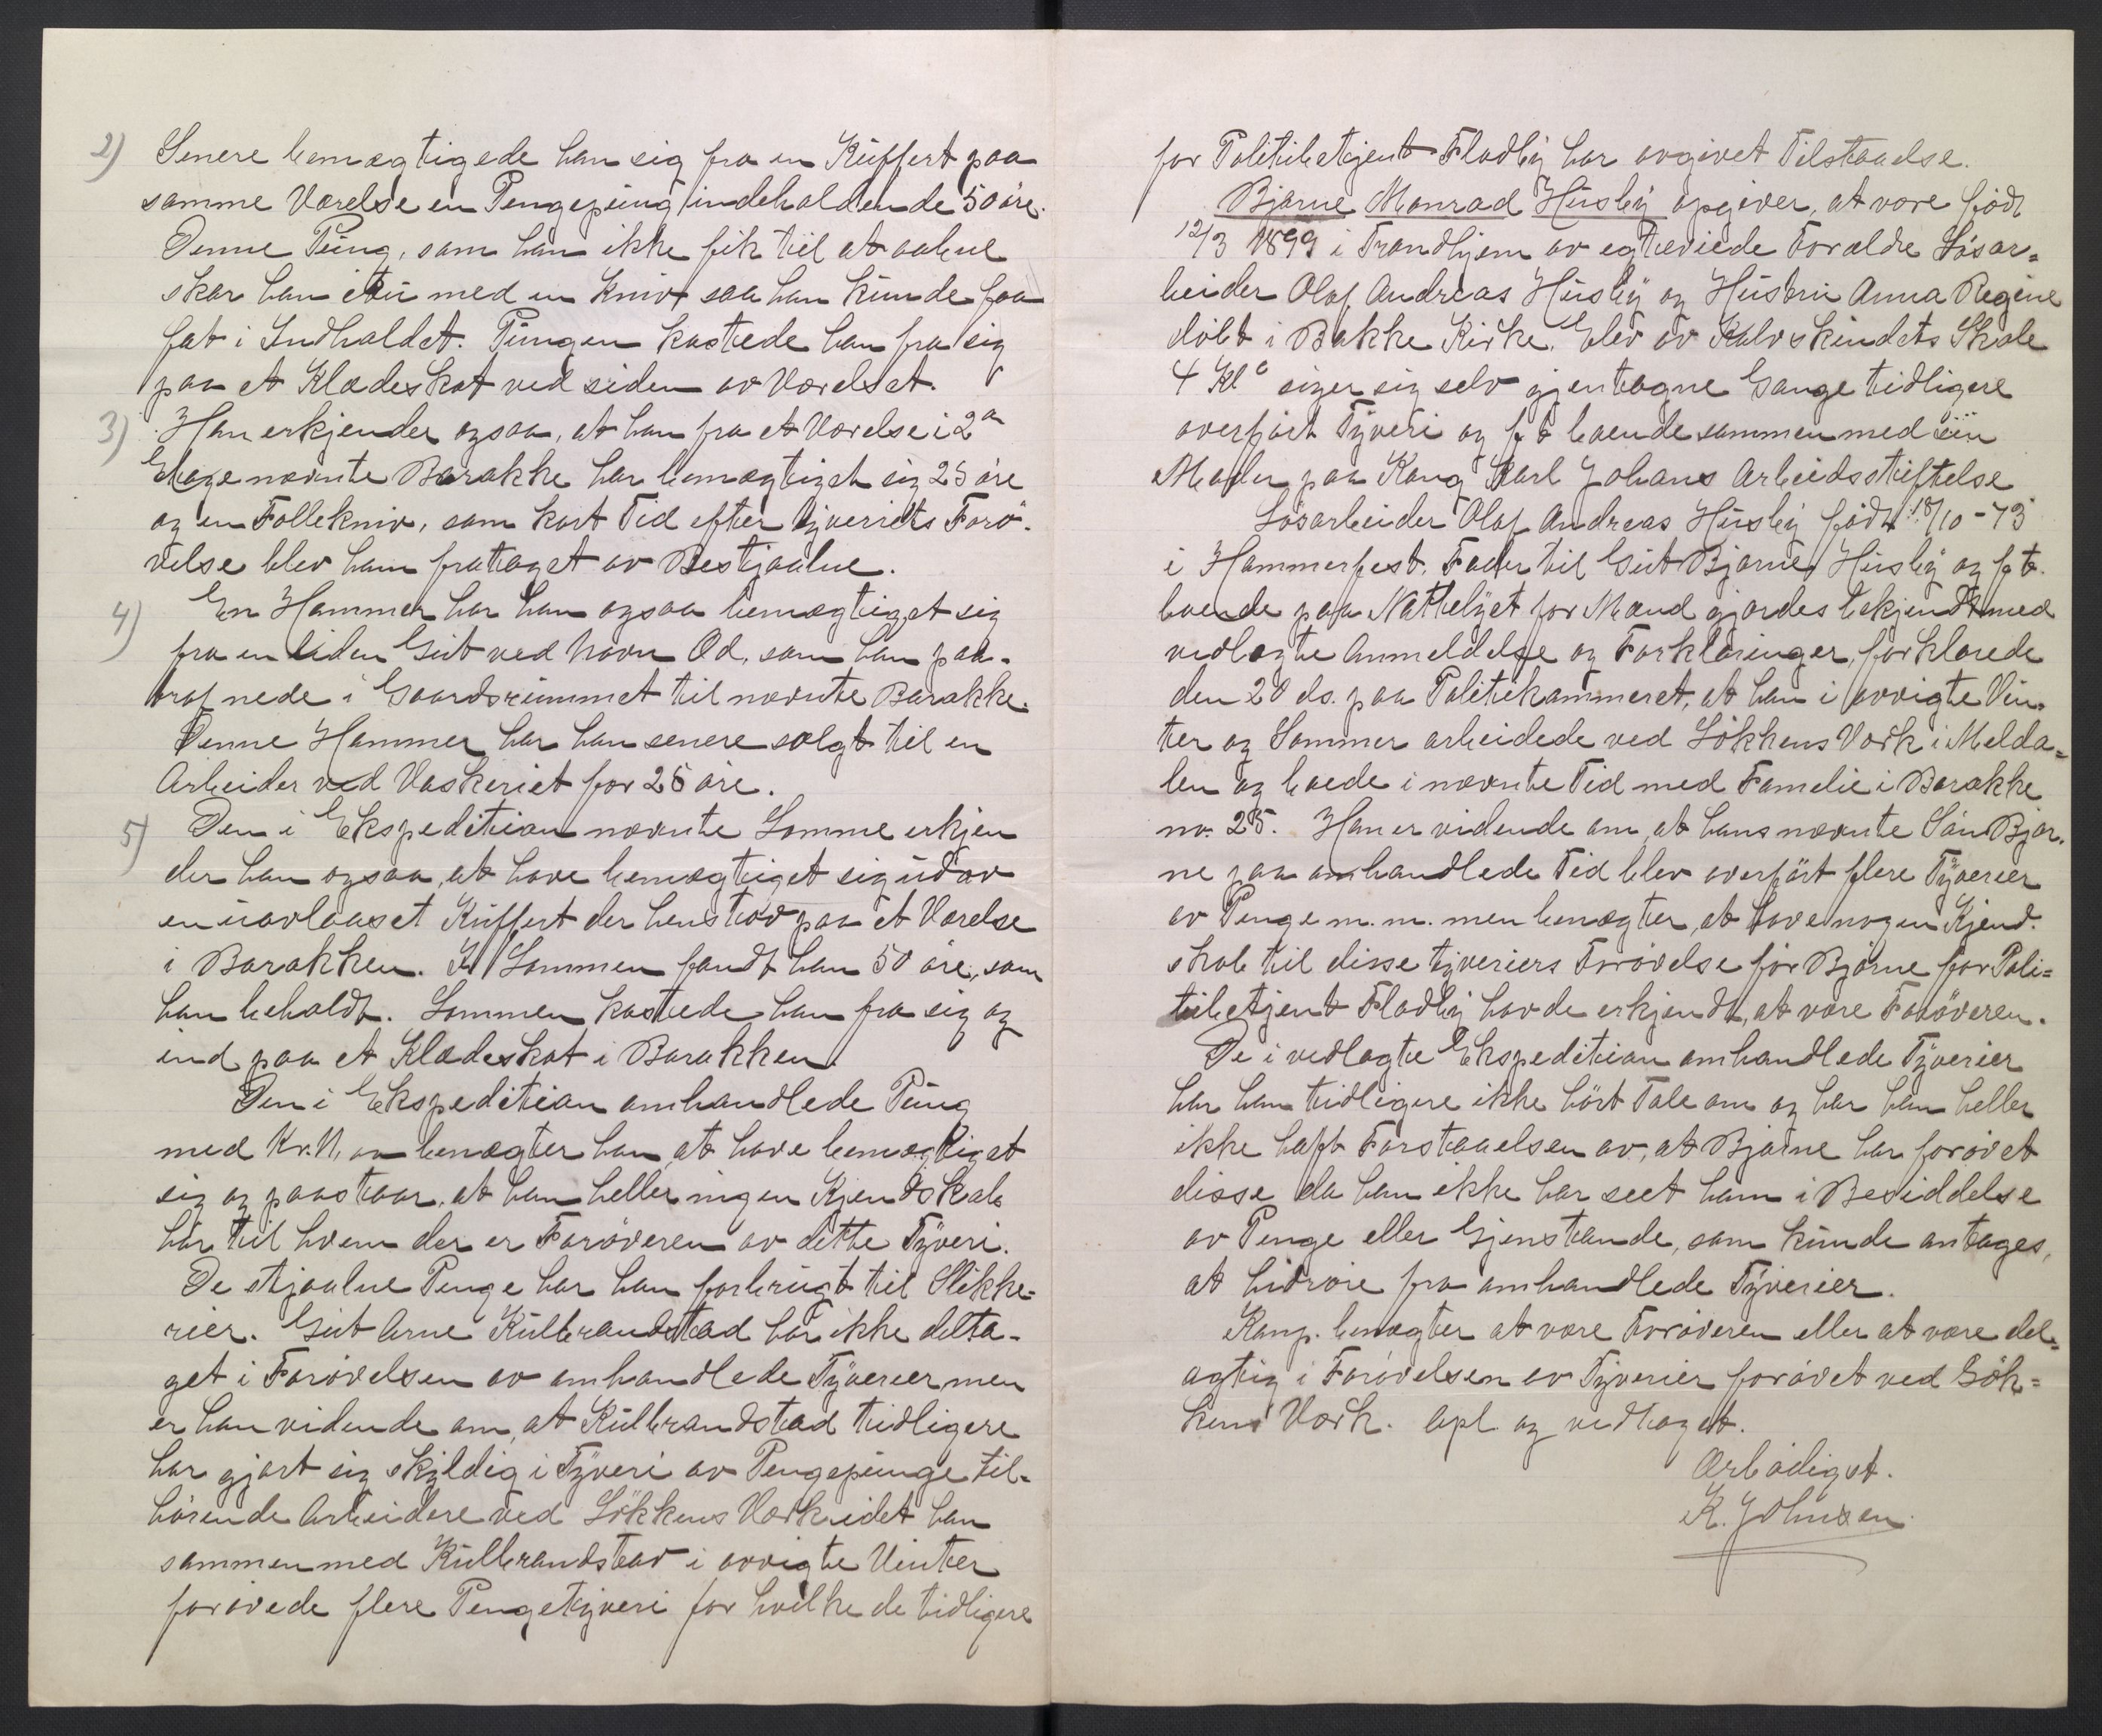 2) Senere bemægtigede han sig fra en Kuffert paa
samme Værelse en Pengepung indeholdende 50 øre.
Denne Pung, som han ikke fik til at aabne
skar han itu med en Kniv saa han kunde faa
fat i Indholdet. Pungen kastede han fra sig
paa et Klædeskot ved siden av Værelset.
3) Han erkjender ogsaa, at han fra et Værelse i 2den
Etage nævnte Barakke har bemægtiget sig 25 øre
og en Follekniv, som kort Tid efter tyveriets Forø-
velse blev ham frataget av Bestjaalne.
4) En Hammer har han ogsaa bemægtiget sig
fra en liden Gut ved Navn Od, som han paa-
traf nede i Gaardsrummet til nævnte Barakke.
Denne Hammer har han senere solgt til en
Arbeider ved Vaskeriet for 25 øre.
5) Den i Ekspedition nævnte Lomme erkjen
der han ogsaa, at have bemægtiget sig ud av
en uavlaaset Kuffert der henstod paa et Værelse
i Barakken. I Lommen fandt han 50 øre, som
han beholdt. Lommen kastede han fra sig og
ind paa et Klædeskot i Barakken.
Den i Ekspedition omhandlede Pung
med Kr. 11, oo benægter han, at have bemægtiget
sig og paastaar, at han heller ingen Kjendskab
har til hvem der er Forøveren av dette Tyveri.
De stjaalne Penge har han forbrugt til Slikke-
rier. Gut Arne Kulbrandstad har ikke delta-
get i Forøvelsen av omhandlede Tyverier men
er han vidende om, at Kulbrandstad tidligere
har gjort sig skyldig i Tyveri av Pengepunge til-
hørende Arbeidere ved Løkkens Værk idet han
sammen med Kulbrandstad i avvigte Vinter
forøvede flere Pengetyveri for hvilke de tidligere
for Politibetjent Fladby har avgivet Tilstaaelse.
Bjarne Monrad Husby opgiver, at være født
12/3 1899 i Trondhjem av egteviede Forældre Løsar-
beider Olaf Andreas Husby og Hustru Anna Regine
døbt i Bakke Kirke. Elev av Kalvskindets Skole
4 Kl. siger sig selv gjentagne Gange tidligere
overført Tyveri og f t boende sammen med sin
Moder paa Kong Karl Johans Arbeidsstiftelse
Løsarbeider Olaf Andreas Husby født 18/10 - 73
i Hammerfest, Fader til Gut Bjarne Husby og f. t.
boende paa Nattelyet for Mænd gjordes bekjendt med
vedlagte Anmeldelse og Forklaringer, forklarede
den 20 ds. paa Politikammeret, at han i avvigte Vin-
ter og Sommer arbeidede ved Løkkens Værk i Melda-
len og boede i nævnte Tid med Familie i Barakke
no. 25. Han er vidende om, at hans nævnte Søn Bjar-
ne paa omhandlede Tid blev overført flere Tyverier
av Penge m. m. men benægter, at have nogen Kjend-
skab til disse tyveriers Forøvelse før Bjarne for Poli-
tibetjent Fladby havde erkjendt, at være Forøveren.
De i vedlagte Ekspedition omhandlede Tyverier
har han tidligere ikke hørt Tale om og har han heller
ikke haft Forstaaelsen av, at Bjarne har forøvet
disse da han ikke har seet ham i Besiddelse
av Penge eller Gjenstande, som kunde antages,
at hidrøre fra omhandlede Tyverier.
Komp. benægter at være Forøveren eller at være del-
agtig i Forøvelsen av Tyverier forøvet ved Løk-
kens Værk. Opl. og vedtaget.
Ærbødigst.
K. Johnsen